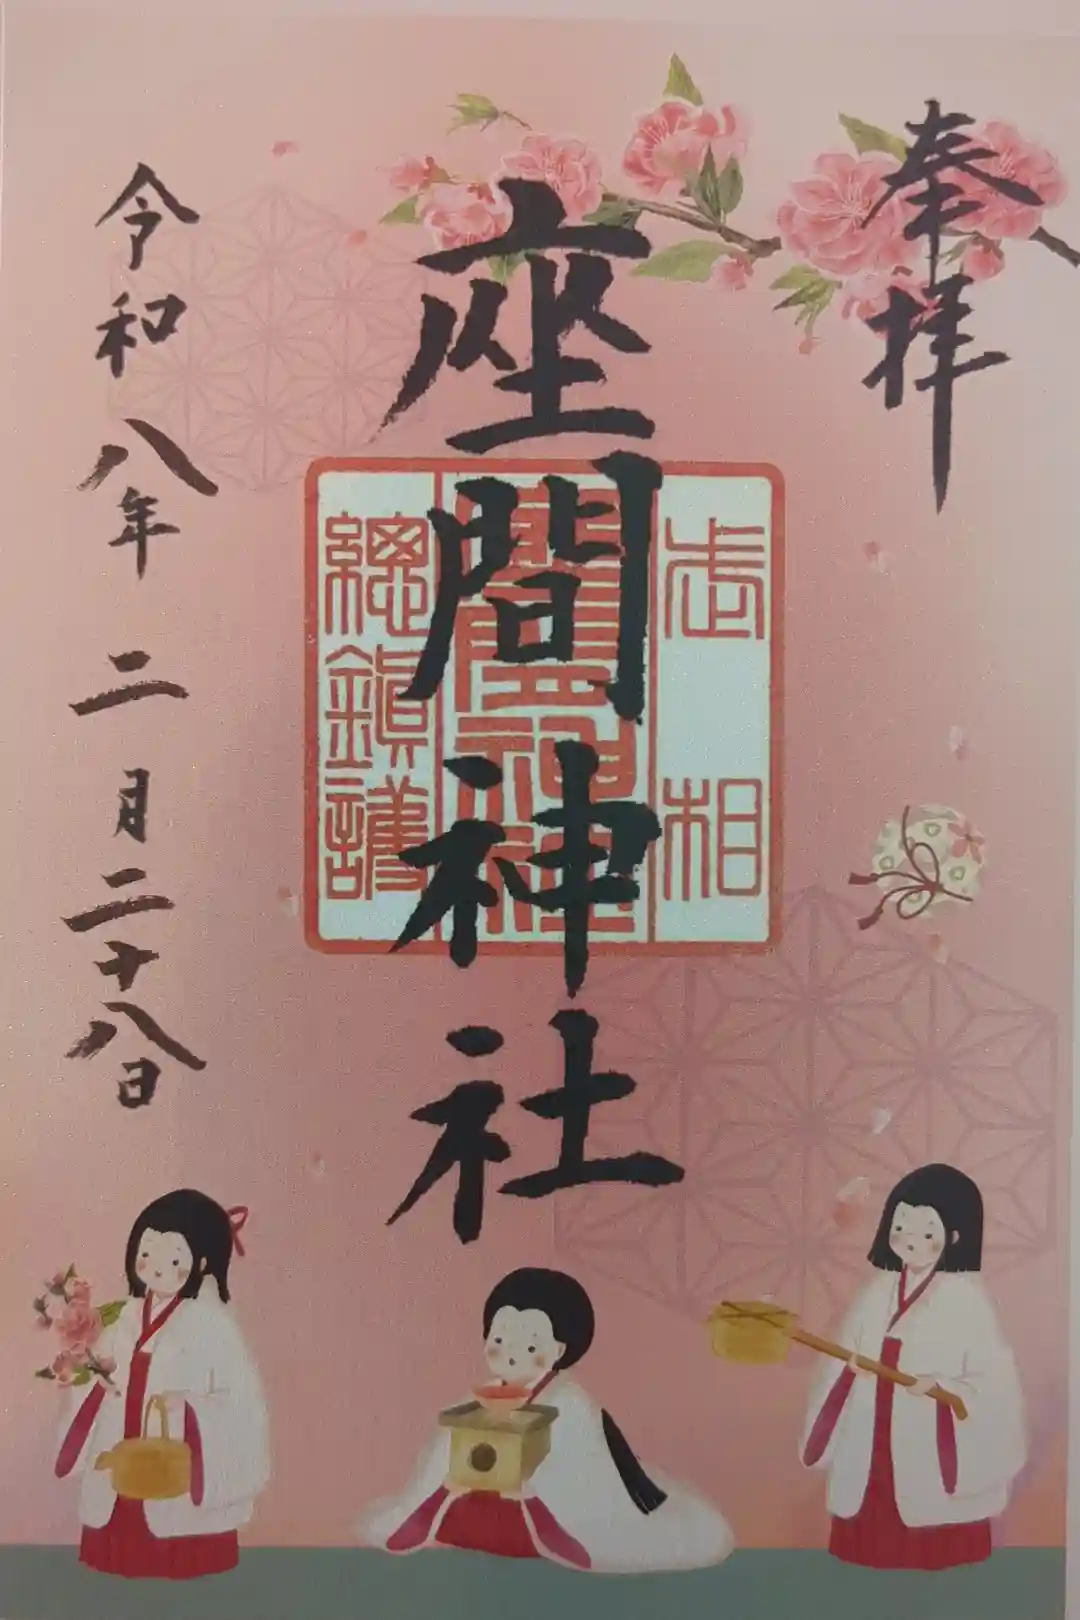 奉拝
座間神社
相武
座間神社
総鎮護
令和八年二月二十八日